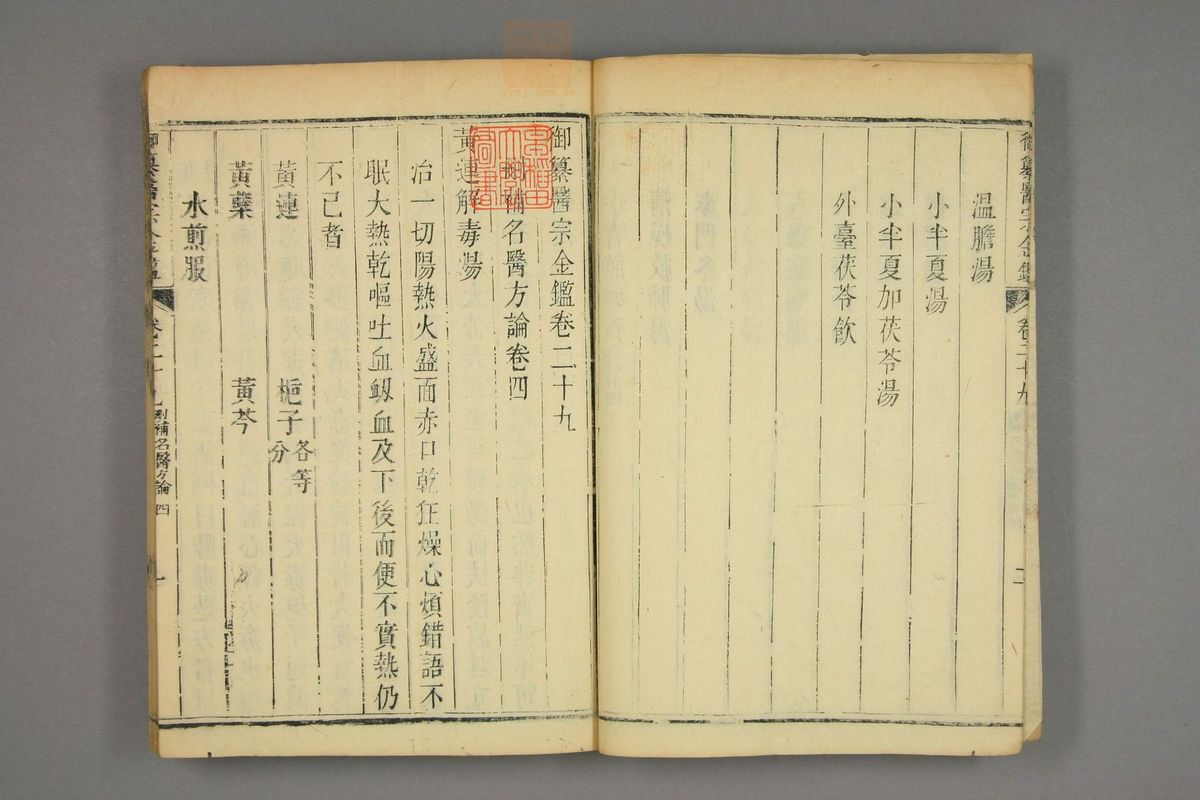 御纂醫宗金鑑 卷二十九 二
溫膽湯
小半夏湯
小半夏加茯苓湯
外臺茯苓飲
御纂醫宗金鑑卷二十九
刪補名醫方論卷四
黃連解毒湯
治一切陽熱火盛面赤口乾狂燥心煩錯語不
眠大熱乾嘔吐血衂血及下後而便不實熱仍
不已者
黃連 梔子各等分
黃蘗 黃芩
水煎服
御纂醫宗金鑑 卷二十九 刪補名醫方論四 一